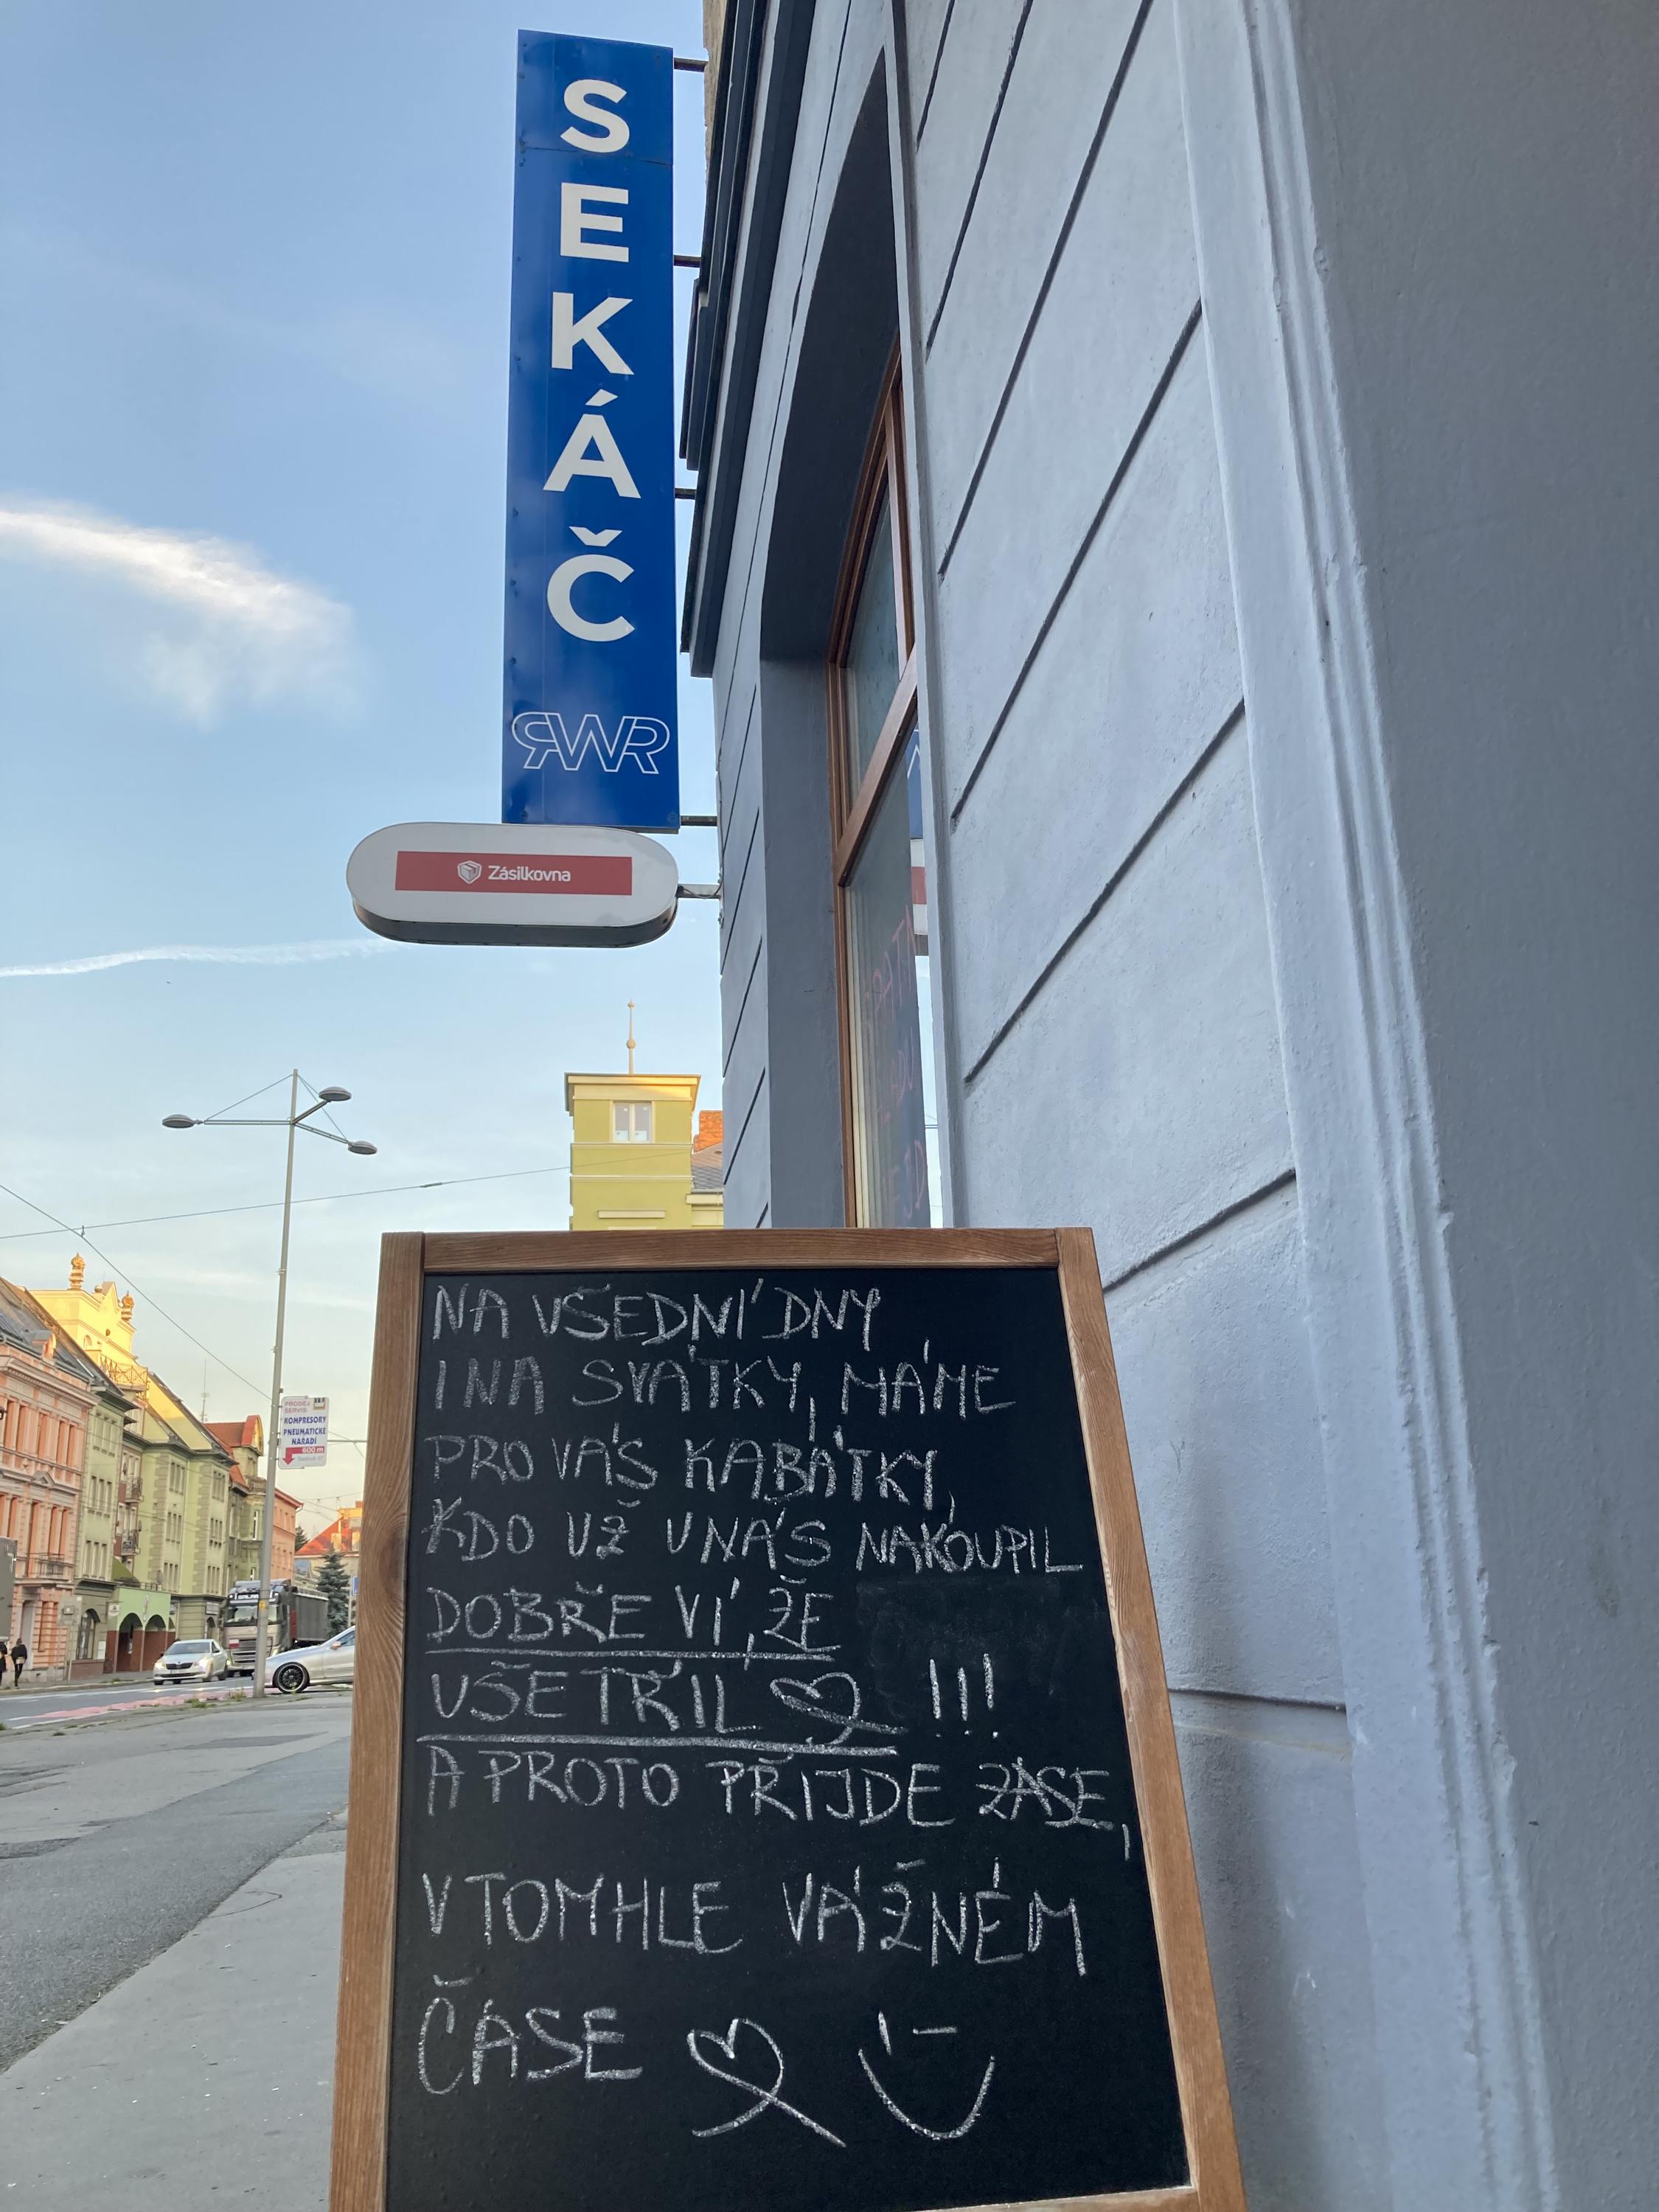 SEKÁČ
RWR
Zásilkovna
PRODEJ
SERVIS
KOMPRESORY
PNEUMATICKÉ
NÁŘADÍ
600 m
NA VŠEDNÍ DNY
I NA SVÁTKY, MÁME
PRO VÁS KABÁTKY,
KDO UŽ U NÁS NAKOUPIL
DOBŘE VÍ, ŽE
UŠETŘIL !!!
A PROTO PŘIJDE ZASE,
V TOMHLE VÁŽNÉM
ČASE